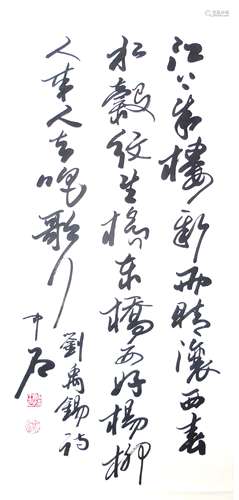 江上朱樓新雨晴瀼西春
水縠紋生橋東橋西好楊柳
人來人去唱歌行
劉禹錫詩
中石